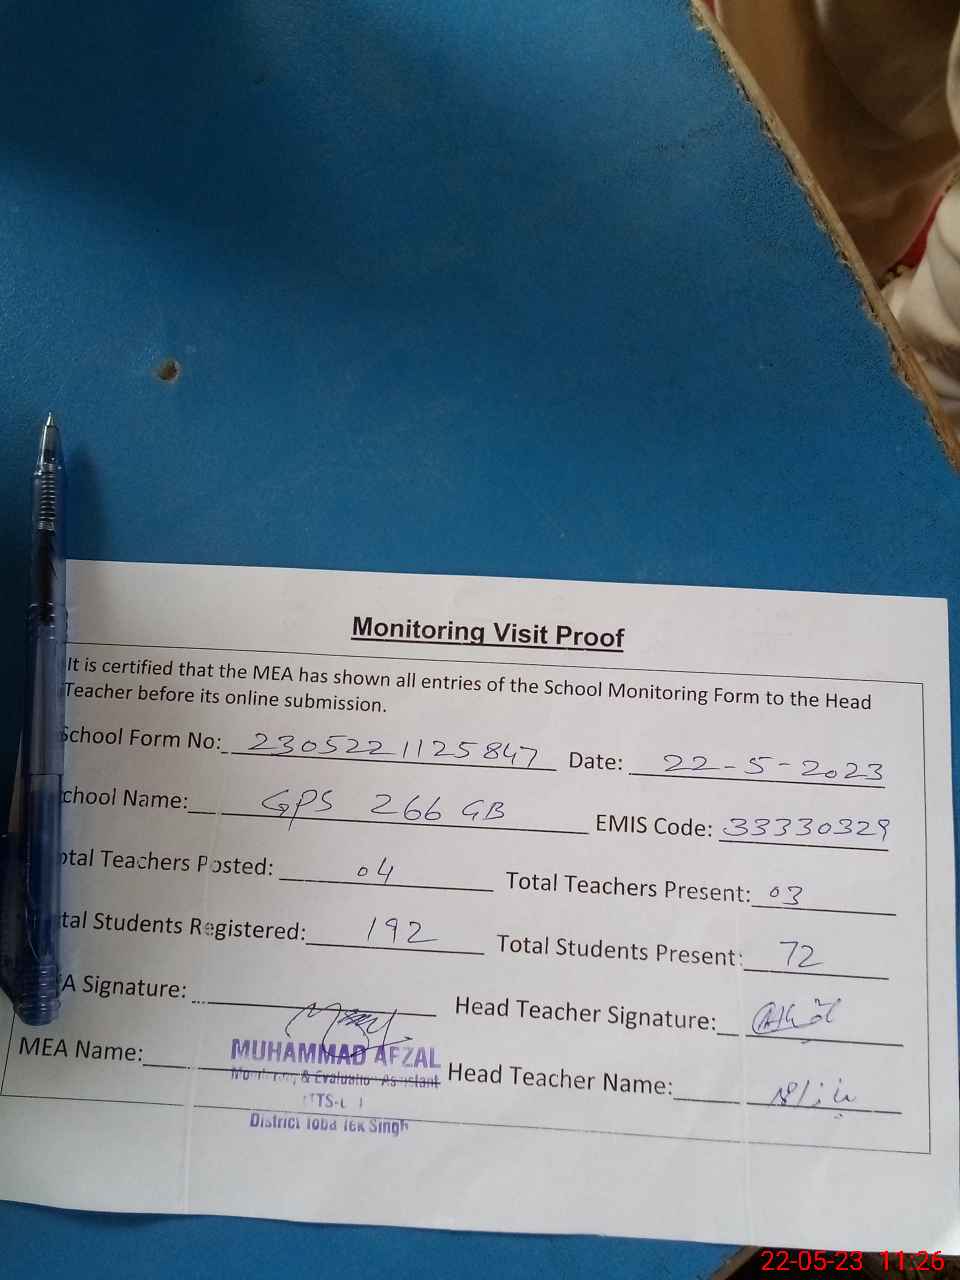 Monitoring Visit Proof
It is certified that the MEA has shown all entries of the School Monitoring Form to the Head
Teacher before its online submission.
School Form No: 2305221125847 Date: 22-5-2023
chool Name: GPS 266 GB EMIS Code: 33330329
otal Teachers Posted: 04 Total Teachers Present: 03
tal Students Registered: 192 Total Students Present: 72
A Signature: Head Teacher Signature:
MEA Name: MUHAMMAD AFZAL Head Teacher Name:
Monitoring & Evaluation Assistant
District Toba Tek Singh
22-05-23 11:26